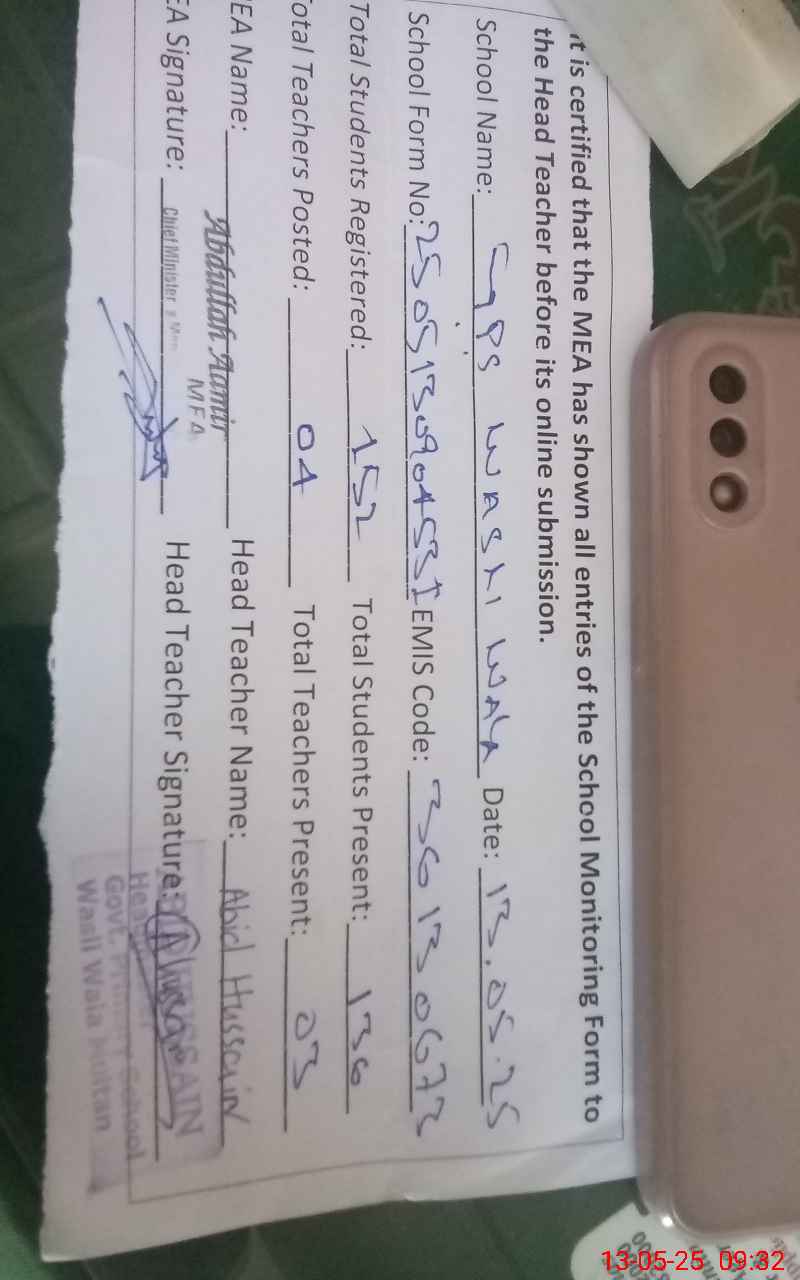 It is certified that the MEA has shown all entries of the School Monitoring Form to
the Head Teacher before its online submission.
School Name: GPS WASLI WALA Date: 13.05.25
School Form No: EMIS Code: 36130673
Total Students Registered: 152 Total Students Present: 136
Total Teachers Posted: 04 Total Teachers Present: 03
MEA Name: Abdullah Aamir Head Teacher Name: Abid Hussain
MEA
MEA Signature: Chief Minister's Head Teacher Signature:
Govt. Primary School
Wasli Wala Multan
13-05-25 09:32